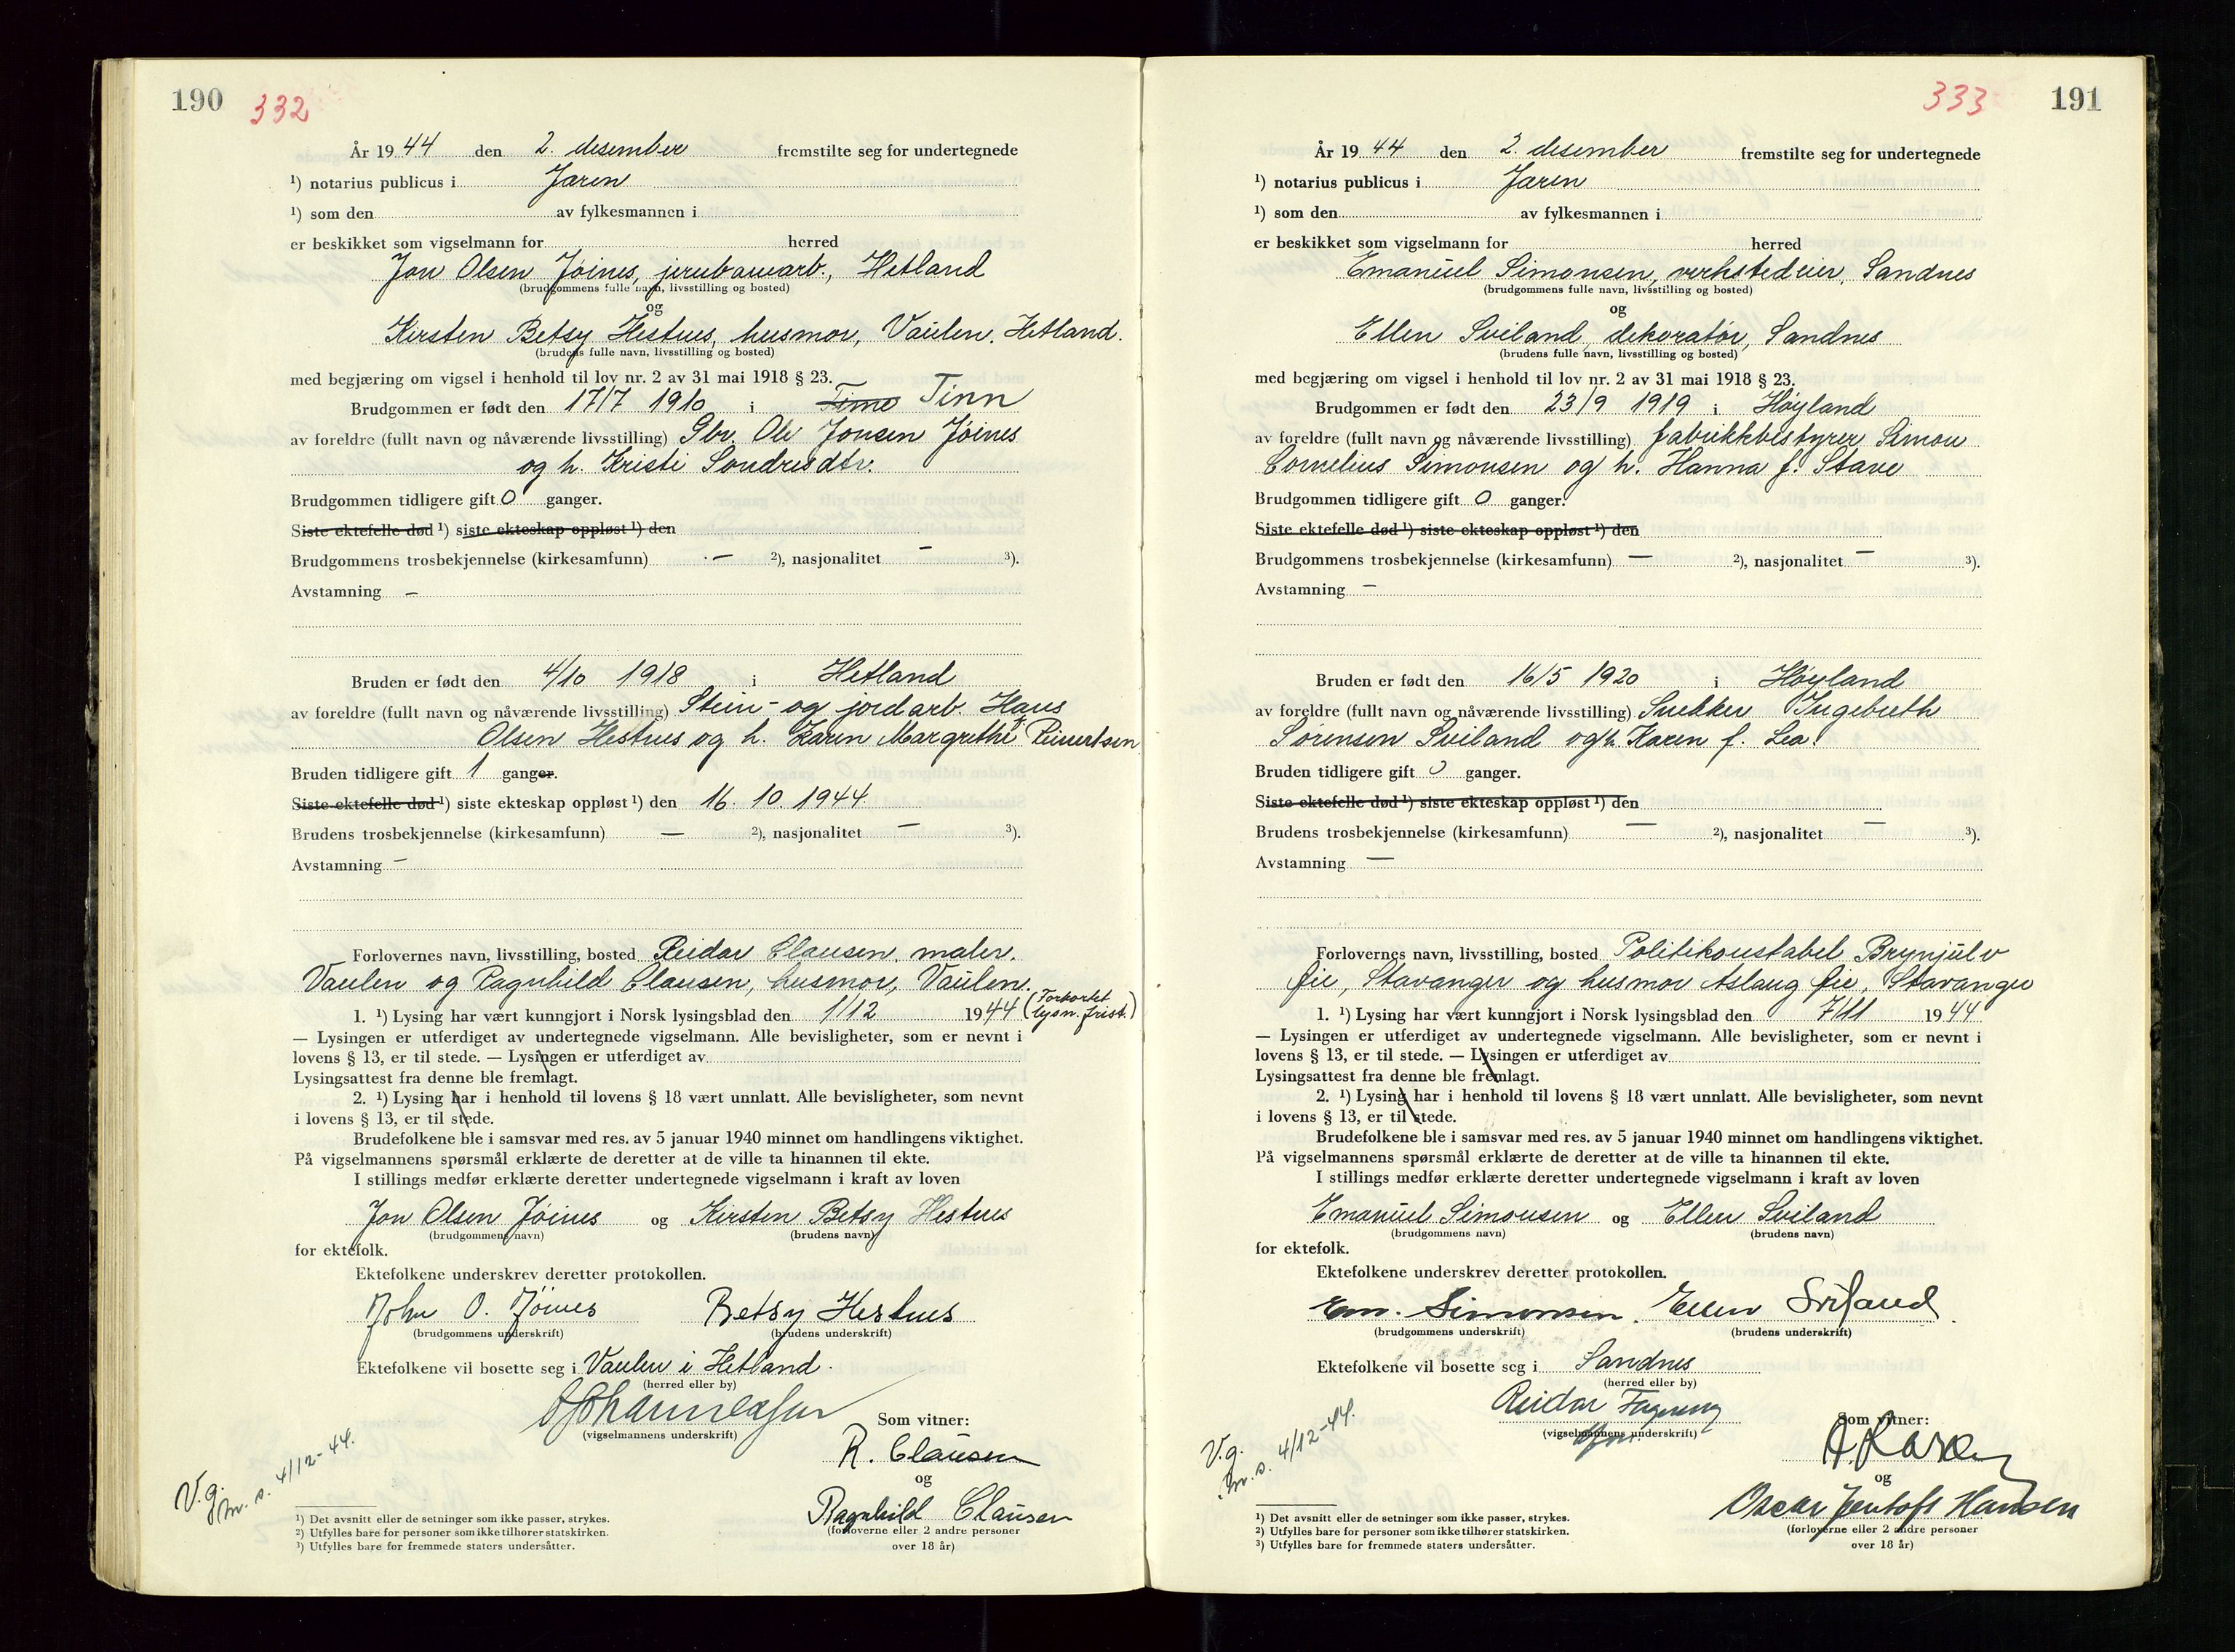 190 332
År 1944 den 2. desember fremstilte seg for undertegnede
¹) notarius publicus i Jæren
¹) som den av fylkesmannen i
er beskikket som vigselmann for herred
Jon Olsen Jóines, jernbanearb., Hetland
(brudgommens fulle navn, livsstilling og bosted)
og
Kirsten Betsy Hestnes, husmor, Vaulen, Hetland.
(brudens fulle navn, livsstilling og bosted)
med begjæring om vigsel i henhold til lov nr. 2 av 31 mai 1918 § 23.
Brudgommen er født den 17/7 1910 i Tinn
av foreldre (fullt navn og nåværende livsstilling) Gbr. Ole Jonsen Jóines
og h. Kristi Sondresdtr.
Brudgommen tidligere gift 0 ganger.
Siste ektefelle død ¹) siste ekteskap oppløst ¹) den
Brudgommens trosbekjennelse (kirkesamfunn) — ²), nasjonalitet — ³).
Avstamning —
Bruden er født den 4/10 1918 i Hetland
av foreldre (fullt navn og nåværende livsstilling) Stein- og jordarb. Hans
Olsen Hestnes og h. Karen Margrethe Reinertsen
Bruden tidligere gift 1 ganger.
Siste ektefelle død ¹) siste ekteskap oppløst ¹) den 16. 10. 1944.
Brudens trosbekjennelse (kirkesamfunn) — ²), nasjonalitet — ³).
Avstamning —
Forlovernes navn, livsstilling, bosted Reidar Clausen, maler.
Vaulen og Ragnhild Clausen, husmor, Vaulen.
1. ¹) Lysing har vært kunngjort i Norsk lysingsblad den 1/12 1944 (Forkortet lysn. frist.)
— Lysingen er utferdiget av undertegnede vigselmann. Alle bevisligheter, som er nevnt i
lovens § 13, er til stede. — Lysingen er utferdiget av
Lysingsattest fra denne ble fremlagt.
2. ¹) Lysing har i henhold til lovens § 18 vært unnlatt. Alle bevisligheter, som nevnt
i lovens § 13, er til stede.
Brudefolkene ble i samsvar med res. av 5 januar 1940 minnet om handlingens viktighet.
På vigselmannens spørsmål erklærte de deretter at de ville ta hinannen til ekte.
I stillings medfør erklærte deretter undertegnede vigselmann i kraft av loven
Jon Olsen Jóines og Kirsten Betsy Hestnes
(brudgommens navn) (brudens navn)
for ektefolk.
Ektefolkene underskrev deretter protokollen.
John O. Jóines Betsy Hestnes
(brudgommens underskrift) (brudens underskrift)
Ektefolkene vil bosette seg i Vaulen i Hetland.
(herred eller by)
Som vitner:
(vigselmannens underskrift)
R. Clausen
og
V.g. m. s. 4/12-44.
Ragnhild Clausen
(forloverne eller 2 andre personer
over 18 år)
¹) Det avsnitt eller de setninger som ikke passer, strykes.
²) Utfylles bare for personer som ikke tilhører statskirken.
³) Utfylles bare for fremmede staters undersåtter.
333 191
År 1944 den 2. desember fremstilte seg for undertegnede
¹) notarius publicus i Jæren
¹) som den av fylkesmannen i
er beskikket som vigselmann for herred
Emanuel Simonsen, verkstedeier, Sandnes
(brudgommens fulle navn, livsstilling og bosted)
og
Ellen Sviland, dekoratør, Sandnes
(brudens fulle navn, livsstilling og bosted)
med begjæring om vigsel i henhold til lov nr. 2 av 31 mai 1918 § 23.
Brudgommen er født den 23/9 1919 i Høyland
av foreldre (fullt navn og nåværende livsstilling) fabrikkbestyrer Simon
Cornelius Simonsen og h. Hanna f. Stave
Brudgommen tidligere gift 0 ganger.
Siste ektefelle død ¹) siste ekteskap oppløst ¹) den
Brudgommens trosbekjennelse (kirkesamfunn) — ²), nasjonalitet — ³).
Avstamning —
Bruden er født den 16/5 1920 i Høyland
av foreldre (fullt navn og nåværende livsstilling) Snekker Ingebreth
Sørensen Sviland og h. Karen f. Lea.
Bruden tidligere gift 0 ganger.
Siste ektefelle død ¹) siste ekteskap oppløst ¹) den
Brudens trosbekjennelse (kirkesamfunn) — ²), nasjonalitet — ³).
Avstamning —
Forlovernes navn, livsstilling, bosted Politikonstabel Brynjulv
Øie, Stavanger og husmor Aslaug Øie, Stavanger
1. ¹) Lysing har vært kunngjort i Norsk lysingsblad den 7/11 1944
— Lysingen er utferdiget av undertegnede vigselmann. Alle bevisligheter, som er nevnt i
lovens § 13, er til stede. — Lysingen er utferdiget av
Lysingsattest fra denne ble fremlagt.
2. ¹) Lysing har i henhold til lovens § 18 vært unnlatt. Alle bevisligheter, som nevnt
i lovens § 13, er til stede.
Brudefolkene ble i samsvar med res. av 5 januar 1940 minnet om handlingens viktighet.
På vigselmannens spørsmål erklærte de deretter at de ville ta hinannen til ekte.
I stillings medfør erklærte deretter undertegnede vigselmann i kraft av loven
Emanuel Simonsen og Ellen Sviland
(brudgommens navn) (brudens navn)
for ektefolk.
Ektefolkene underskrev deretter protokollen.
Em. Simonsen. Ellen Sviland
(brudgommens underskrift) (brudens underskrift)
Ektefolkene vil bosette seg i Sandnes
(herred eller by)
Reidar
Som vitner:
(vigselmannens underskrift)
og
V.g. m. s. 4/12-44.
Oscar Jentoft Hansen
(forloverne eller 2 andre personer
over 18 år)
¹) Det avsnitt eller de setninger som ikke passer, strykes.
²) Utfylles bare for personer som ikke tilhører statskirken.
³) Utfylles bare for fremmede staters undersåtter.